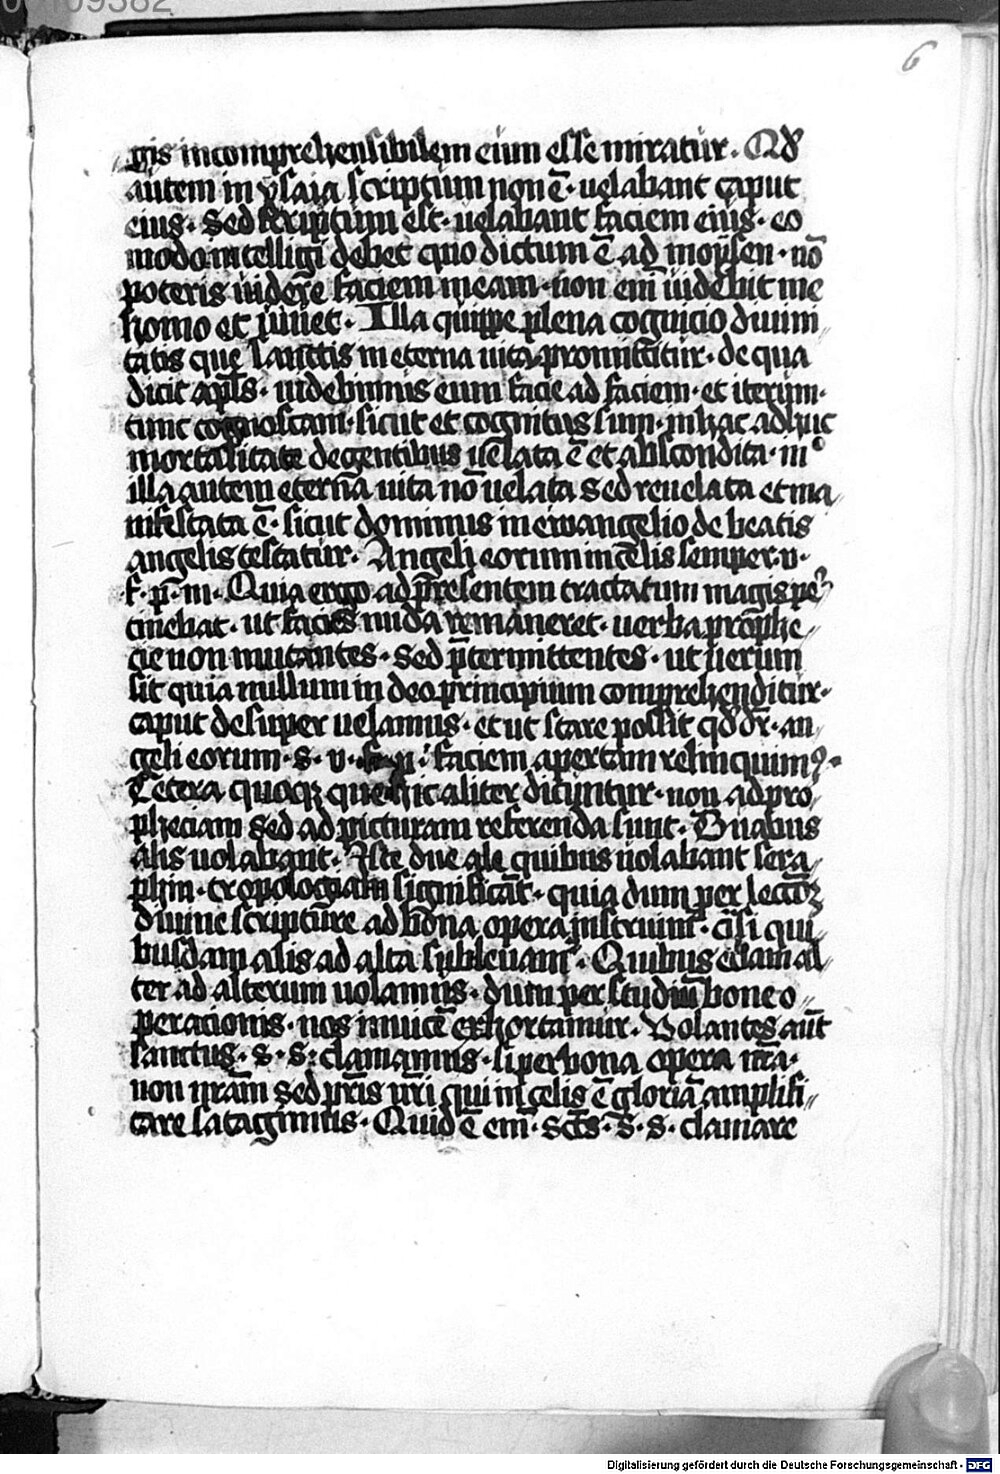 6
gis incomprehensibilem eium esse miratur. Qd̄
autem in ysaia scriptum non ē. uelabant caput
eius. Sed scriptum est. uelabant faciem eius. eo
modo intelligi debet quo dictum ē ad moysen. nō
poteris uidere faciem meam. non em̄ uidebit me
homo et uiuet. Illa quippe plena cognicio diuini
tatis que sanctis in eterna uita promittitur. de qua
dicit apl̄s. uidebimus eum facie ad faciem. et iterum.
tunc cognoscam. sicut et cognitus sum. in hac adhuc
mortalitate degentibus uelata ē et abscondita. in
illa autem eterna uita nō uelata sed reuelata et ma
nifestata ē. sicut dominus in ewangelio de beatis
angelis testatur. Angeli eorum in celis semper. v.
f. p. m. Quia ergo ad p̄resentem tractatum magis pe
tinebat. ut facies nuda remaneret. uerba prophe
cie non mutantes. sed p̄termittentes. ut uerum
sit quia nullum in deo principium comprehenditur.
caput desuper uelamus. et ut stare possit qd̄ dr̄. an
geli eorum. s. v. f. p. faciem apertam relinquim⁹.
Cetera quoqꝫ que hic aliter dicuntur. non ad pro
pheciam sed ad picturam referenda sunt. Duabus
alis uolabant. Iste due ale quibus uolabant sera
phin. tropologiam significāt. quia dum per lectōꝫ
diuine scripture ad bona opera instruim̄. q̄si qui
busdam alis ad alta subleuam̄. Quibus eciam al
ter ad alterum uolamus. dum per studiū bone o
peracionis. nos inuicē exhortamur. Volantes aūt
sanctus. S. S. clamamus. si per bona opera nr̄a.
non nr̄am sed p̄ris nr̄i qui in celis ē gloriā amplifi
care satagimus. Quid ē em̄. sct̄s. S. S. clamare
Digitalisierung gefördert durch die Deutsche Forschungsgemeinschaft - DFG